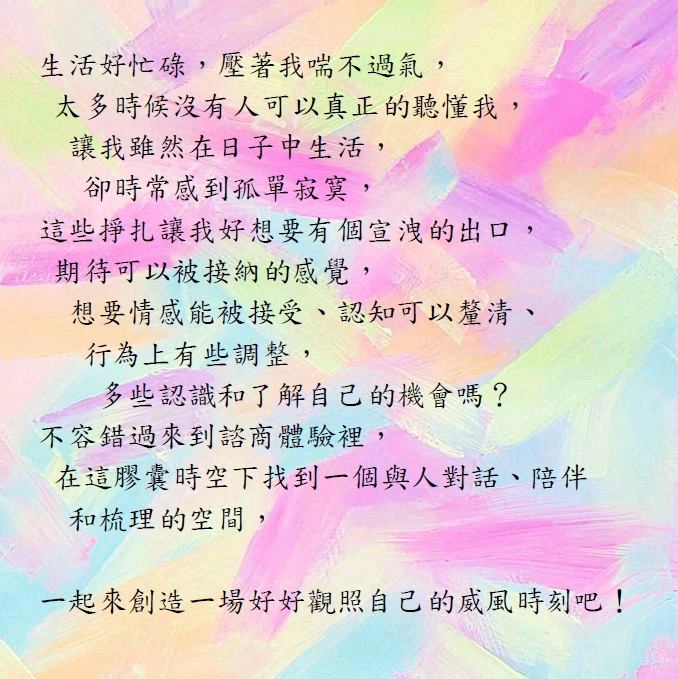 生活好忙碌，壓著我喘不過氣，
太多時候沒有人可以真正的聽懂我，
讓我雖然在日子中生活，
卻時常感到孤單寂寞，
這些掙扎讓我好想要有個宣洩的出口，
期待可以被接納的感覺，
想要情感能被接受、認知可以釐清、
行為上有些調整，
多些認識和了解自己的機會嗎？
不容錯過來到諮商體驗裡，
在這膠囊時空下找到一個與人對話、陪伴
和梳理的空間，
一起來創造一場好好觀照自己的威風時刻吧！